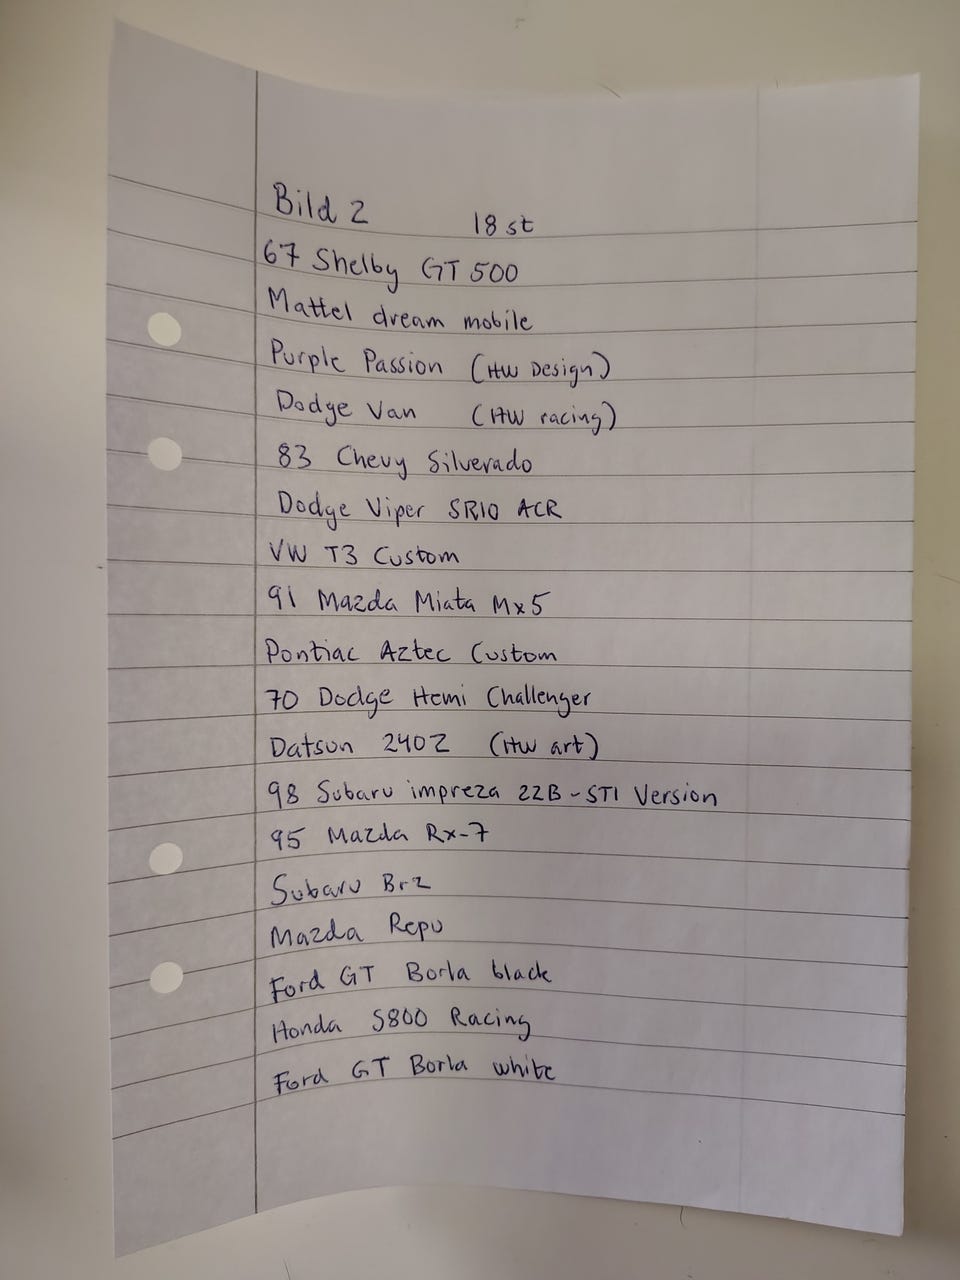 Bild 2 18 st
67 Shelby GT 500
Mattel dream mobile
Purple Passion (HW Design)
Dodge Van (HW racing)
83 Chevy Silverado
Dodge Viper SR10 ACR
VW T3 Custom
91 Mazda Miata Mx5
Pontiac Aztec Custom
70 Dodge Hemi Challenger
Datsun 240Z (HW art)
98 Subaru impreza 22B-STI Version
95 Mazda Rx-7
Subaru Brz
Mazda Repu
Ford GT Borla black
Honda S800 Racing
Ford GT Borla white